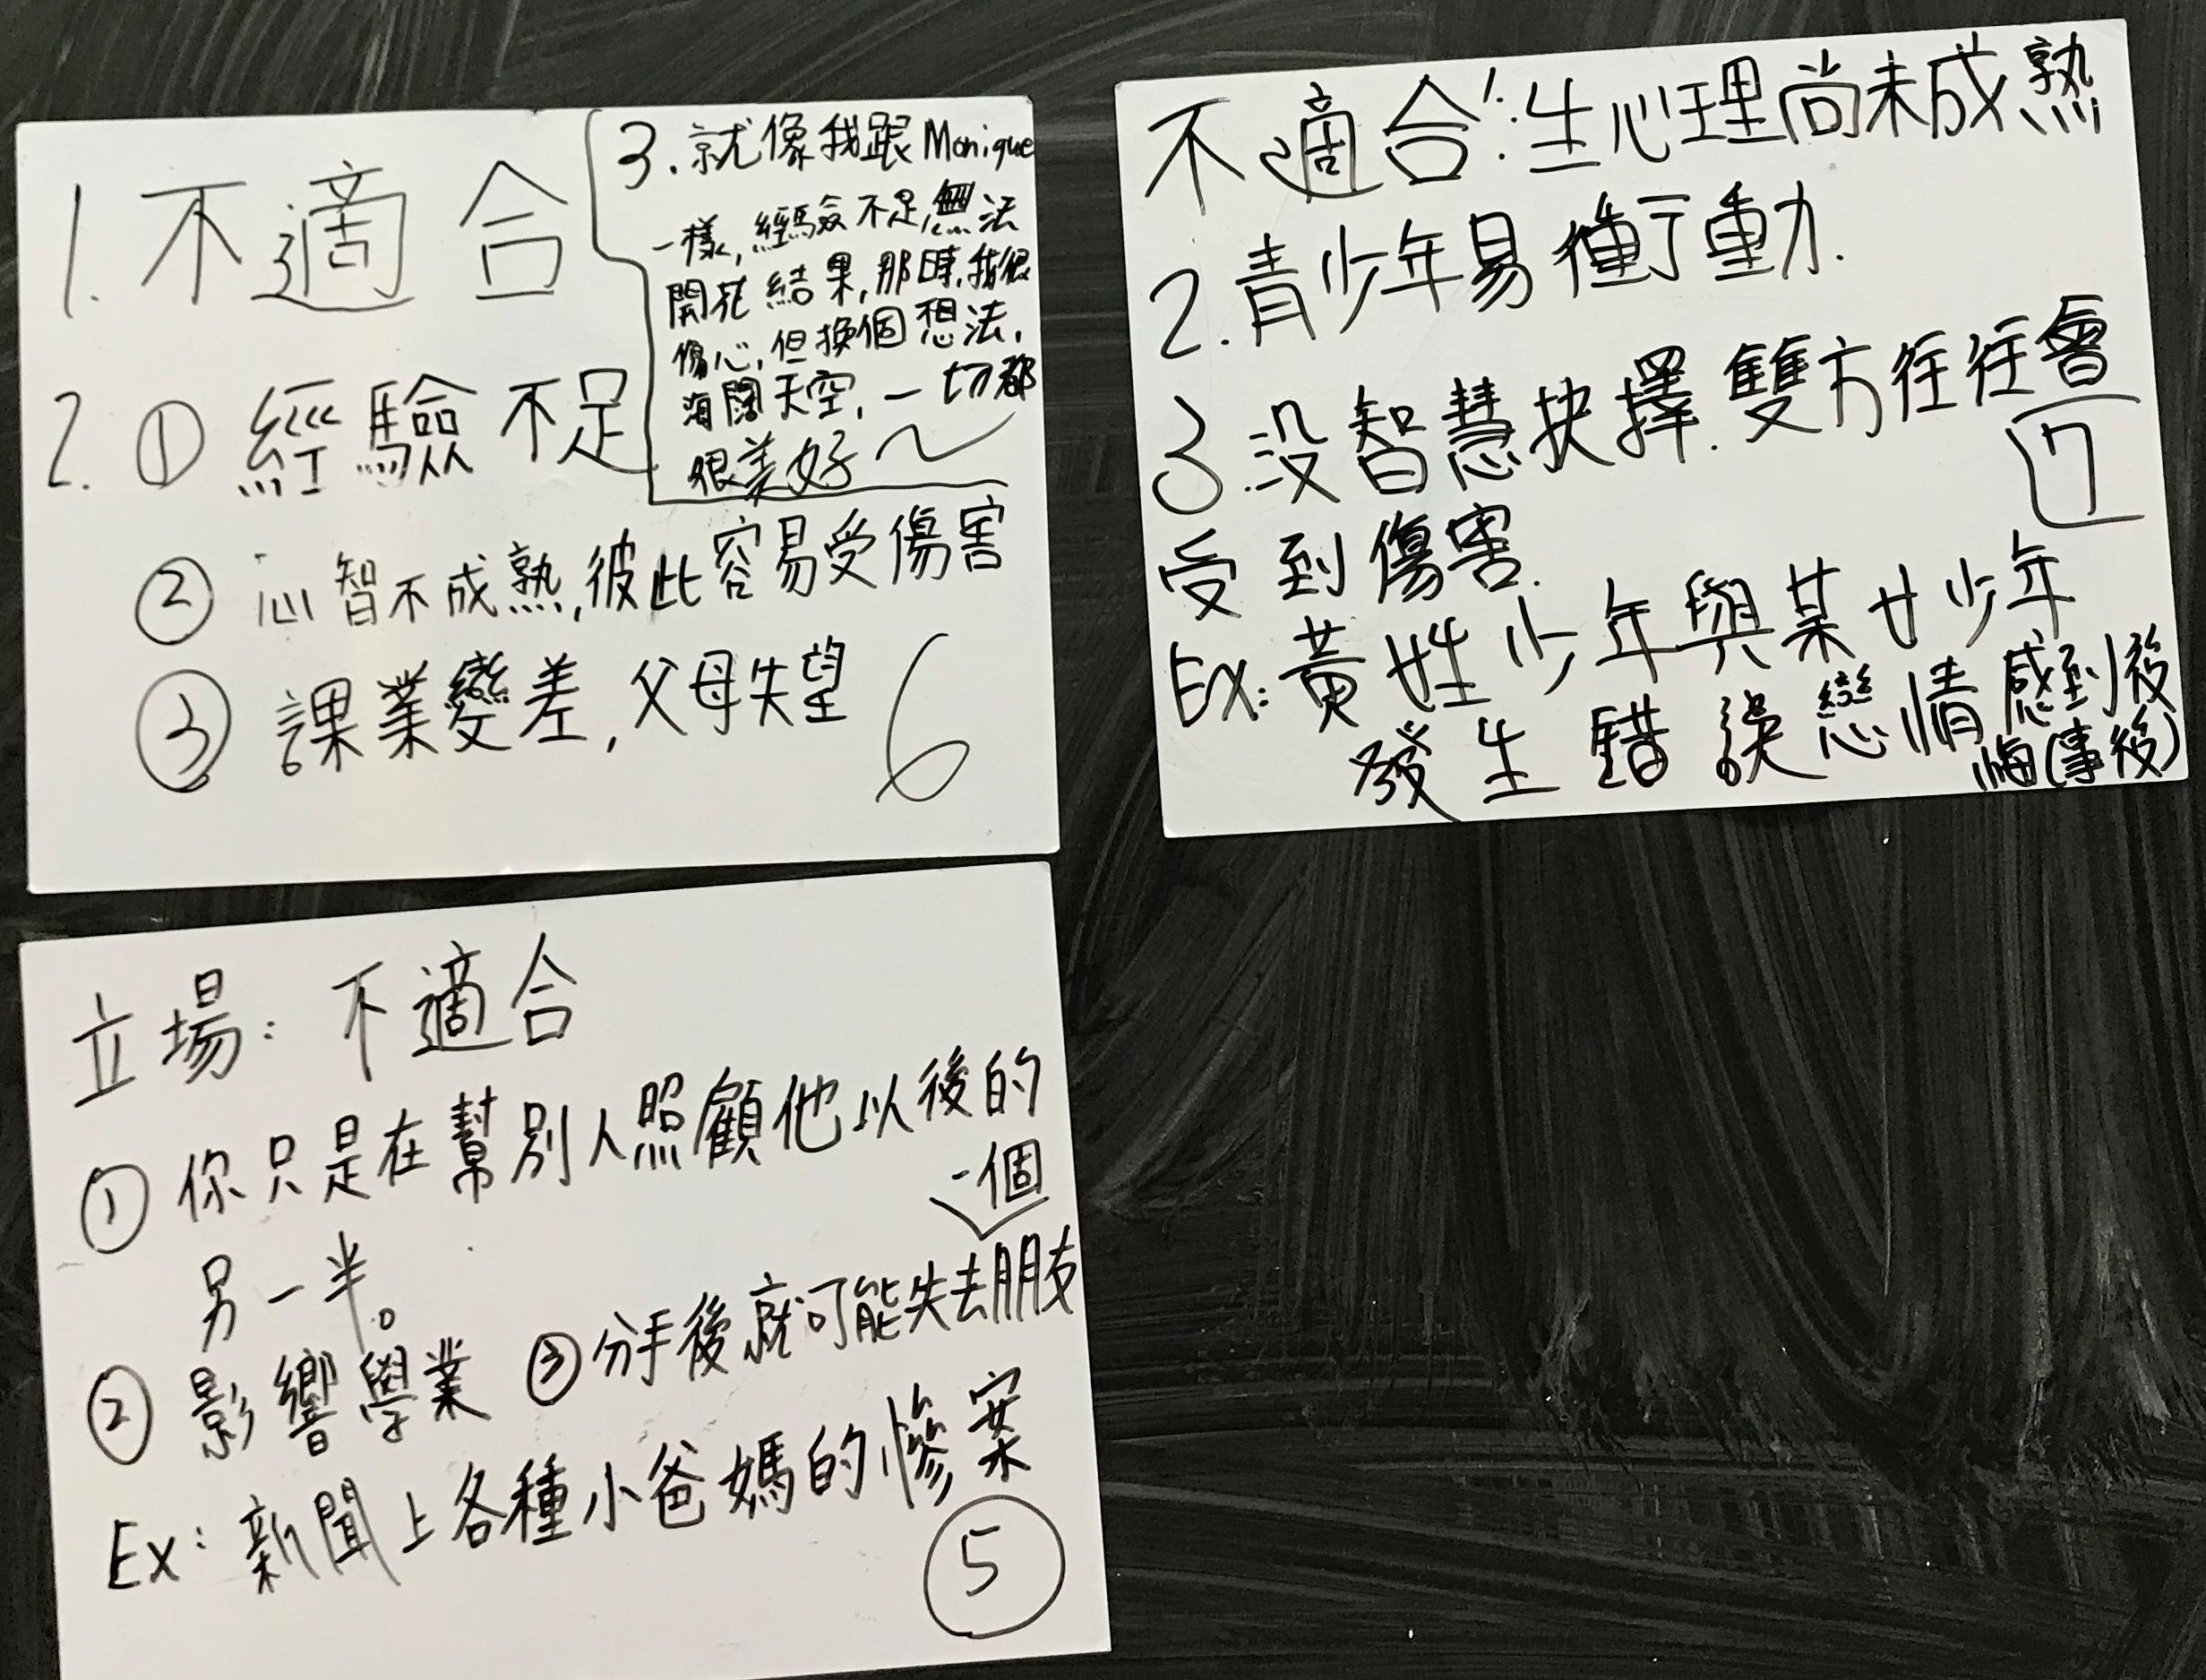 1. 不適合
2. ① 經驗不足
② 心智不成熟,彼此容易受傷害
③ 課業變差,父母失望
3. 就像我跟Monique
一樣,經驗不足,無法
開花結果,那時,我很
傷心,但換個想法,
海闊天空,一切都
很美好～
6
不適合:1.生心理尚未成熟
2.青少年易衝動.
3.没智慧抉擇.雙方往往會
受到傷害.
Ex:黃姓少年與某女少年
發生錯誤戀情感到後
悔(事後)
7
立場:不適合
① 你只是在幫別人照顧他以後的
另一半。
② 影響學業 ③分手後就可能失去一個朋友
Ex:新聞上各種小爸媽的慘案
5